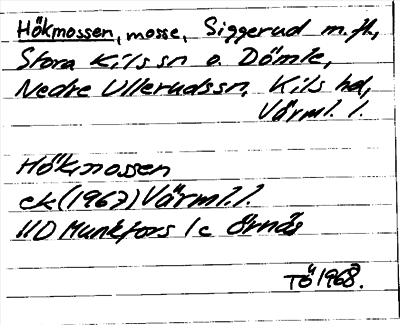 Hökmossen, mosse, Siggerud m.fl.,
Stora Kils sn o. Dömle,
Nedre Ulleruds sn, Kils hd,
Värml. l.
Hökmossen
ek (1967) Värml. l.
11D Munkfors 1c Örnäs
TÖ 1968.